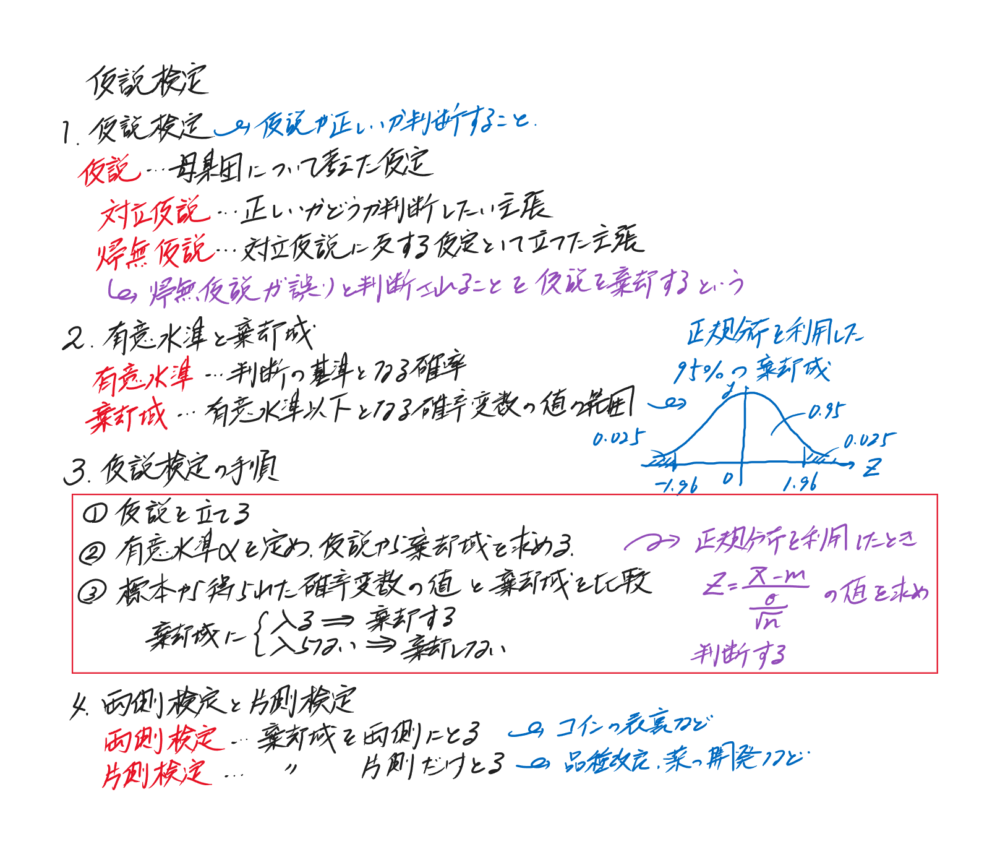 仮説検定
1. 仮説検定 → 仮説が正しいか判断すること.
仮説…母集団について考えた仮定
対立仮説…正しいかどうか判断したい主張
帰無仮説…対立仮説に反する仮定として立てた主張
↳ 帰無仮説が誤りと判断されることを仮説を棄却するという
2. 有意水準と棄却域
有意水準…判断の基準となる確率
棄却域…有意水準以下となる確率変数の値の範囲 →
正規分布を利用した
95%の棄却域
y
0.95
0.025
0.025
-1.96 0 1.96 Z
3. 仮説検定の手順
① 仮説を立てる
② 有意水準αを定め、仮説から棄却域を求める.
③ 標本から得られた確率変数の値と棄却域を比較
棄却域に { 入る ⇒ 棄却する
入らない ⇒ 棄却しない
→ 正規分布を利用したとき
Z = (X̄ - m) / (σ/√n) の値を求め
判断する
4. 両側検定と片側検定
両側検定…棄却域を両側にとる → コインの表裏など
片側検定… 〃 片側だけとる → 品種改良、薬の開発など